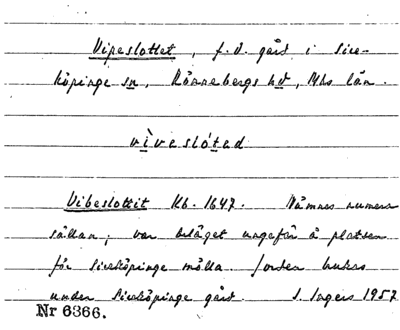 Vipeslottet, f.d. gård i Sire-
köpinge sn, Rönnebergs hd, Mhs län.
vìveslótad
Vibeslottit Kb. 1647. Nämnes numera
sällan; var beläget ungefär å platsen
för Sireköpinge mölla. Jorden brukas
under Sireköpinge gård. S. Ingers 1957
Nr 6366.